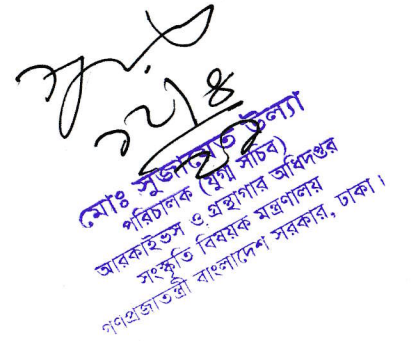 ১২/৪
মোঃ সুজায়েত উল্যা
পরিচালক (যুগ্ম সচিব)
আরকাইভস ও গ্রন্থাগার অধিদপ্তর
সংস্কৃতি বিষয়ক মন্ত্রণালয়
গণপ্রজাতন্ত্রী বাংলাদেশ সরকার, ঢাকা।